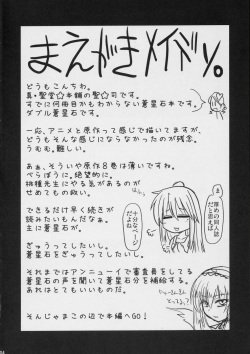 まえがきメイドリ。
どうもこんちわ。
真・聖堂☆本舗の聖☆司です。
すでに何冊目かもわからない蒼星石本です。
ダブル蒼星石です。
一応、アニメと原作って感じで描いてますが、
どうもそんな感じにならなかったのが残念。
うむむ、難しい。
あぁ、そういや原作8巻は薄いですね。
べらぼうに。絶望的に。
桃種先生にやる気があるのが
せめてもの救いですが。
できるだけ早く続きが
読みたいもんだなぁ…。
蒼星石が。
ぎゅうってしたいし。
蒼星石にぎゅうってしたいし。
それまではアンニューイで審査員をしてる
蒼星石の声を聞いて蒼星石分を補給する。
あれはとてもいいものだ。
そんじゃまこの辺で本編へGO!
ま、
厚めの同人誌
だと思えば
十分なページ
だよね